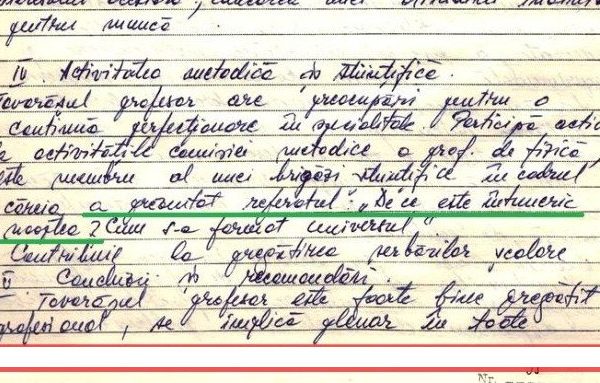 pentru muncă
IV. Activitatea metodică și științifică.
Tovarășul profesor are preocupări pentru o
continuă perfecționare în specialitate. Participă activ
la activitățile comisiei metodice a prof. de fizică,
este membru al unei brigăzi științifice în cadrul
căreia a prezentat referatul: „De ce este întuneric
noaptea? Cum s-a format universul"
Contribuie la pregătirea serbărilor școlare
V Concluzii și recomandări.
Tovarășul profesor este foarte bine pregătit
profesional, se implică plenar în toate
Nr.